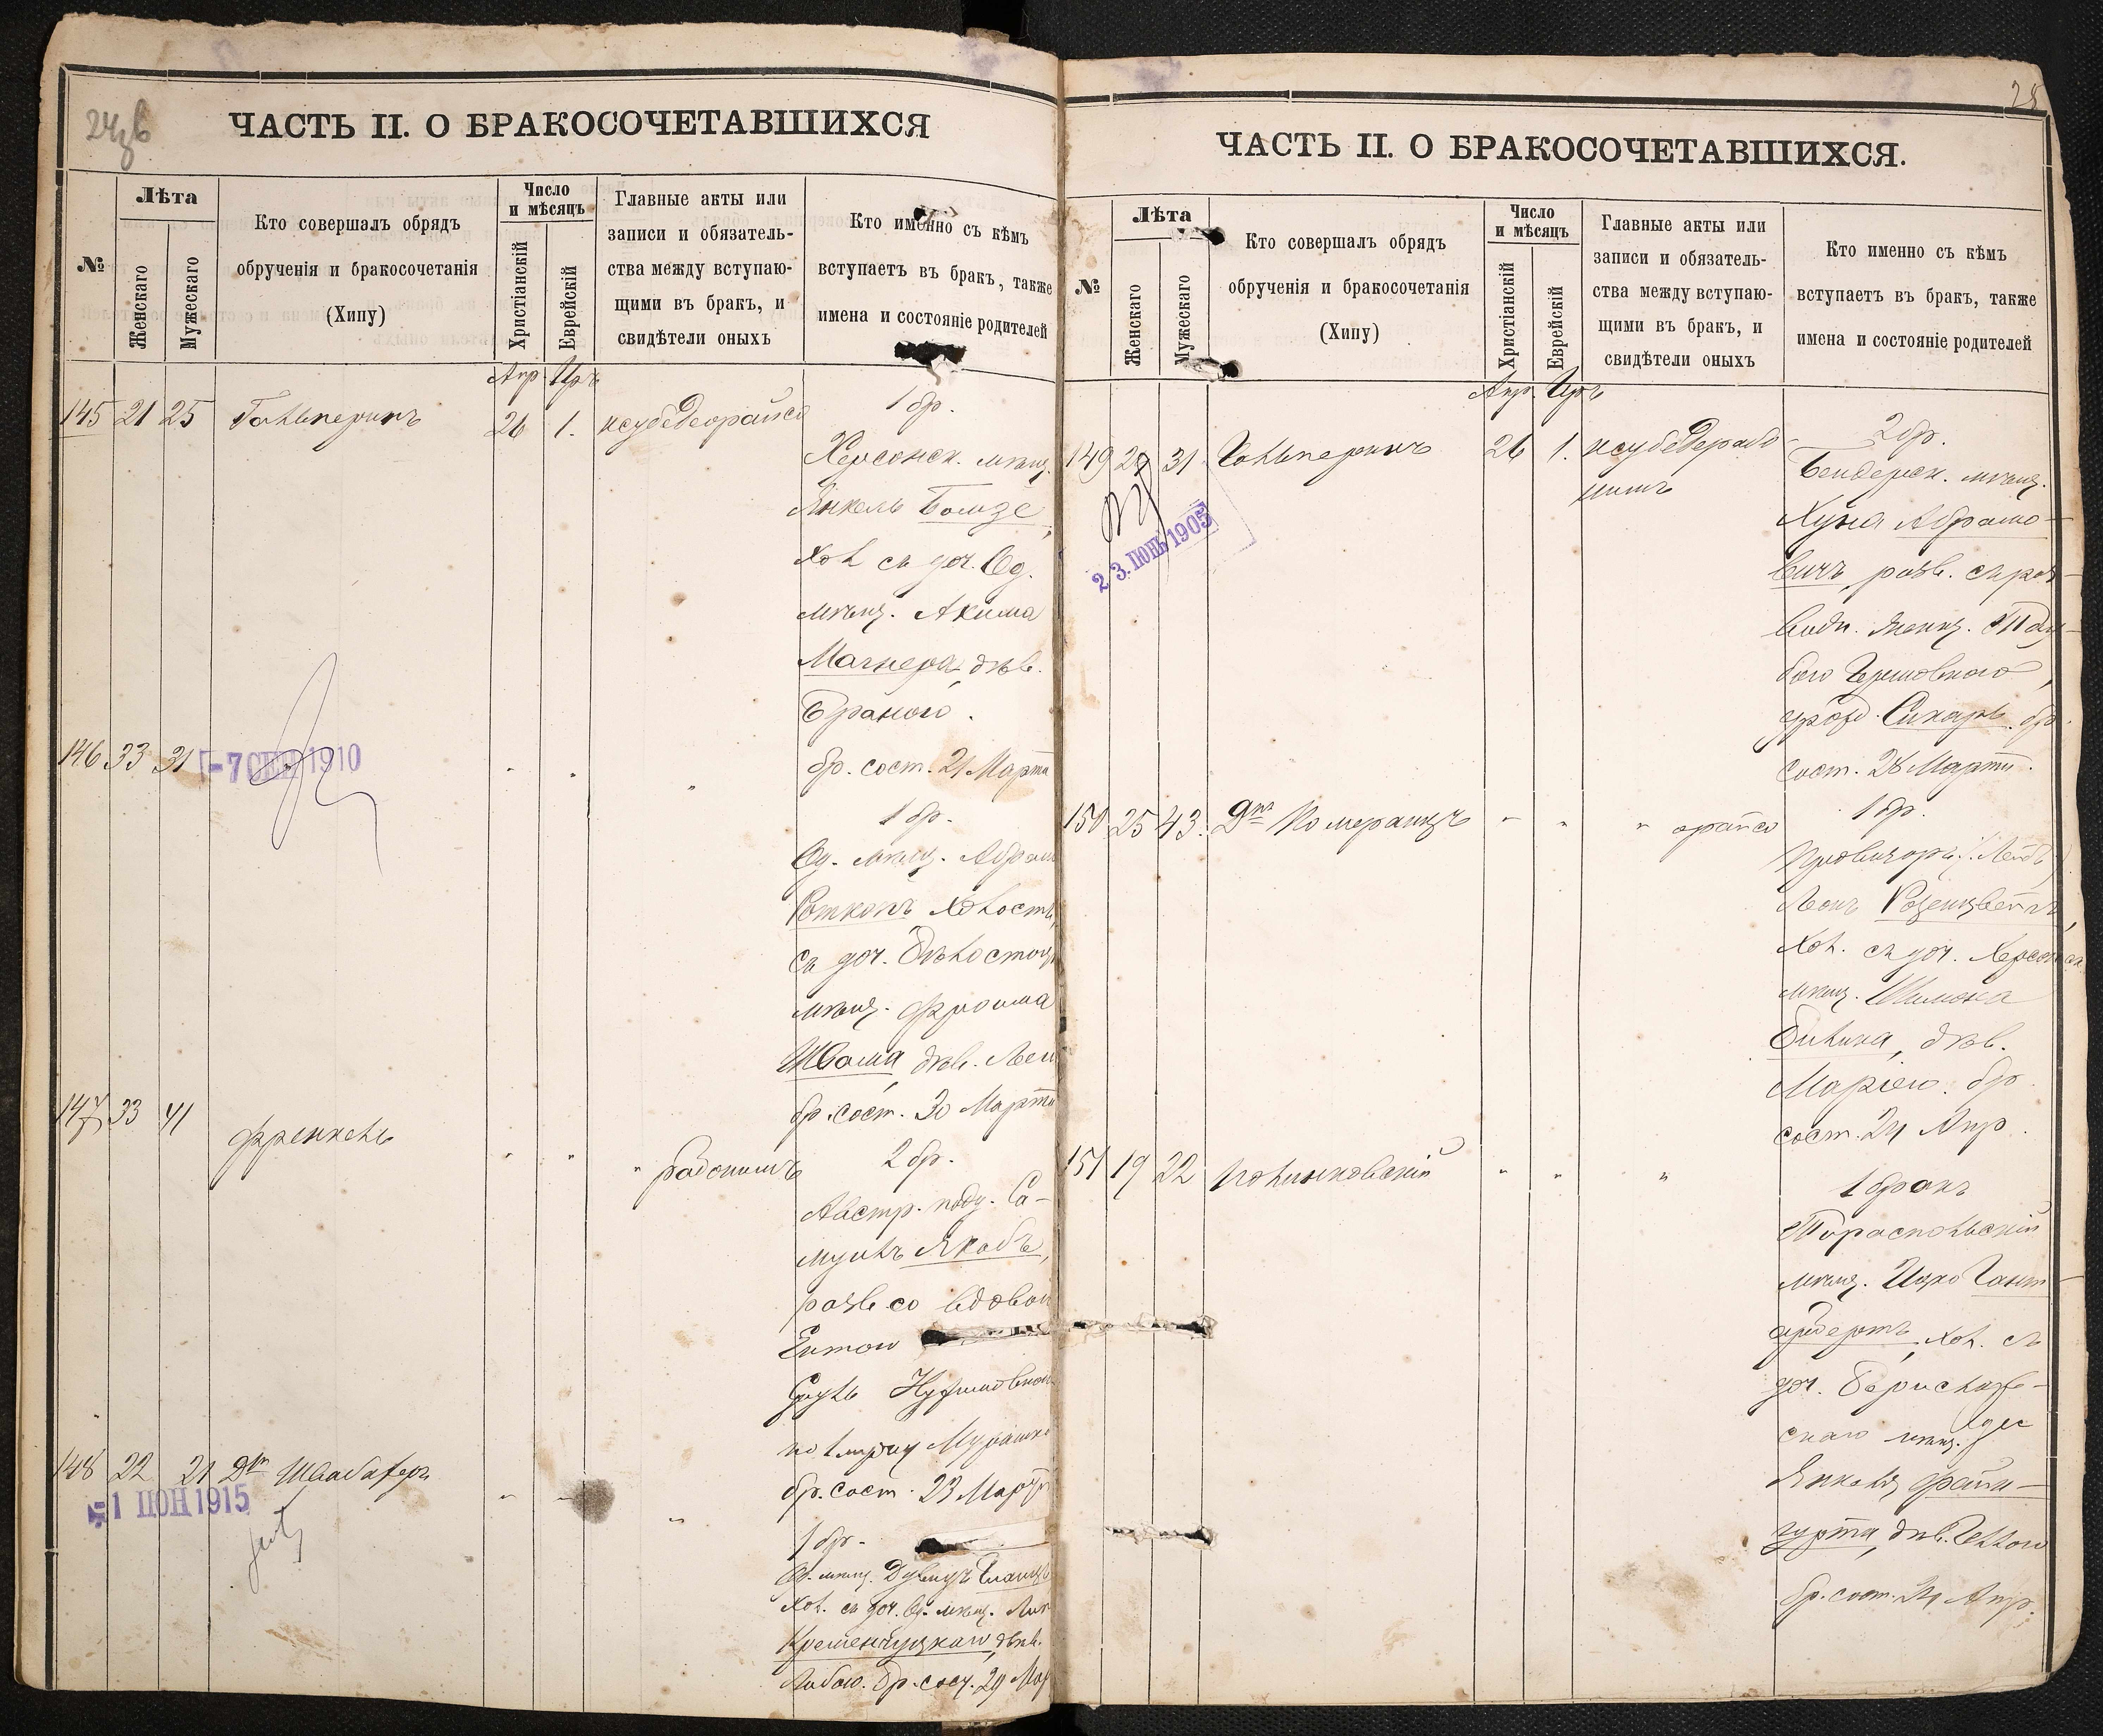 24об
ЧАСТЬ II. О БРАКОСОЧЕТАВШИХСЯ
№
Лѣта
Женскаго
Мужескаго
Кто совершалъ обрядъ
обрученія и бракосочетанія
(Хипу)
Число
и мѣсяцъ
Христіанскій
Еврейскій
Главные акты или
записи и обязатель-
ства между вступаю-
щими въ бракъ, и
свидѣтели оныхъ
Кто именно съ кѣмъ
вступаетъ въ бракъ, также
имена и состояніе родителей
Апр. Иръ
145 21 25 Гальперинъ 26 1. ксубедеорайсо
1 бр.
Херсонск. мѣщ.
Янкель Бомзе,
хол. съ доч. Од.
мѣщ. Акима
Магнера, дѣв.
Браною.
бр. сост. 21 Марта
146 33 31 " " "
-7 СЕН 1910
1 бр.
Од. мѣщ. Абрам
Роткопъ холост.
съ доч. Бѣлостоц
мѣщ. Фроима
Швама дѣв. Леи
бр. сост. 30 Марта
147 33 41 Френкель " " " рабонимъ
2 бр.
Австр. подд. Са-
муилъ Якобъ,
разв. со вдовой
Ентою
по 1 мужу Мурашко
бр. сост. 23 Марта
148 22 21 Дтъ Швабахеръ " " "
1 ІЮН 1915
1 бр.
Од. мѣщ. Дувидъ
хол. съ доч. Од. мѣщ.
Кременчуцкаго, дѣв.
Любою. бр. сост. 29 Мар
ЧАСТЬ II. О БРАКОСОЧЕТАВШИХСЯ.
№
Лѣта
Женскаго
Мужескаго
Кто совершалъ обрядъ
обрученія и бракосочетанія
(Хипу)
Число
и мѣсяцъ
Христіанскій
Еврейскій
Главные акты или
записи и обязатель-
ства между вступаю-
щими въ бракъ, и
свидѣтели оныхъ
Кто именно съ кѣмъ
вступаетъ въ бракъ, также
имена и состояніе родителей
Апр. Иръ
149 29 31 Гальперинъ 26 1. ксубедерабо-
нимъ
23. ІЮНЬ 1905
2 бр.
Бендерск. мѣщ.
Хуна Абрамо-
вичъ, разв. съ раз-
водн. женщ. Тау-
бою
урожд. Сихаръ. бр.
сост. 28 Марта.
150 25 43. Дтъ Померанцъ " " " орайсо
1 бр.
Провизоръ (Лейбъ)
Леонъ Розенцвейгъ,
хол. съ доч. Херсонск.
мѣщ. Шимона
Билина, дѣв.
Маріею. бр.
сост. 24 Апр.
151 19 22 Полинковскій " " "
1 бракъ
Тираспольскій
мѣщ. Ицко Гант-
гудертъ, хол. съ
доч. Бериславь-
скаго мѣщ.
Янкеля Файн-
гурта, дѣв. Геллою
бр. сост. 24 Апр.